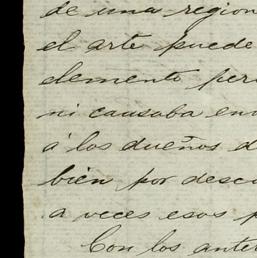 de una region
el arte puede
elemento per
ni causaba en
á los dueños d
bien por desc
a veces esos p
Con los ante